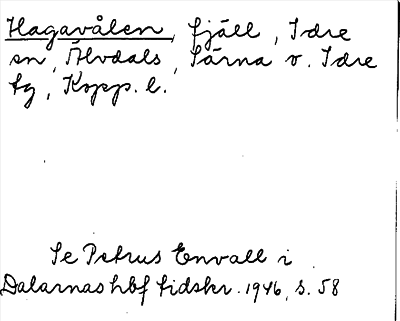 Hagavålen, fjäll, Idre
sn, Älvdals, Särna o. Idre
tg, Kopp. l.
Se Petrus Envall i
Dalarnas hbf tidskr. 1946, s. 58